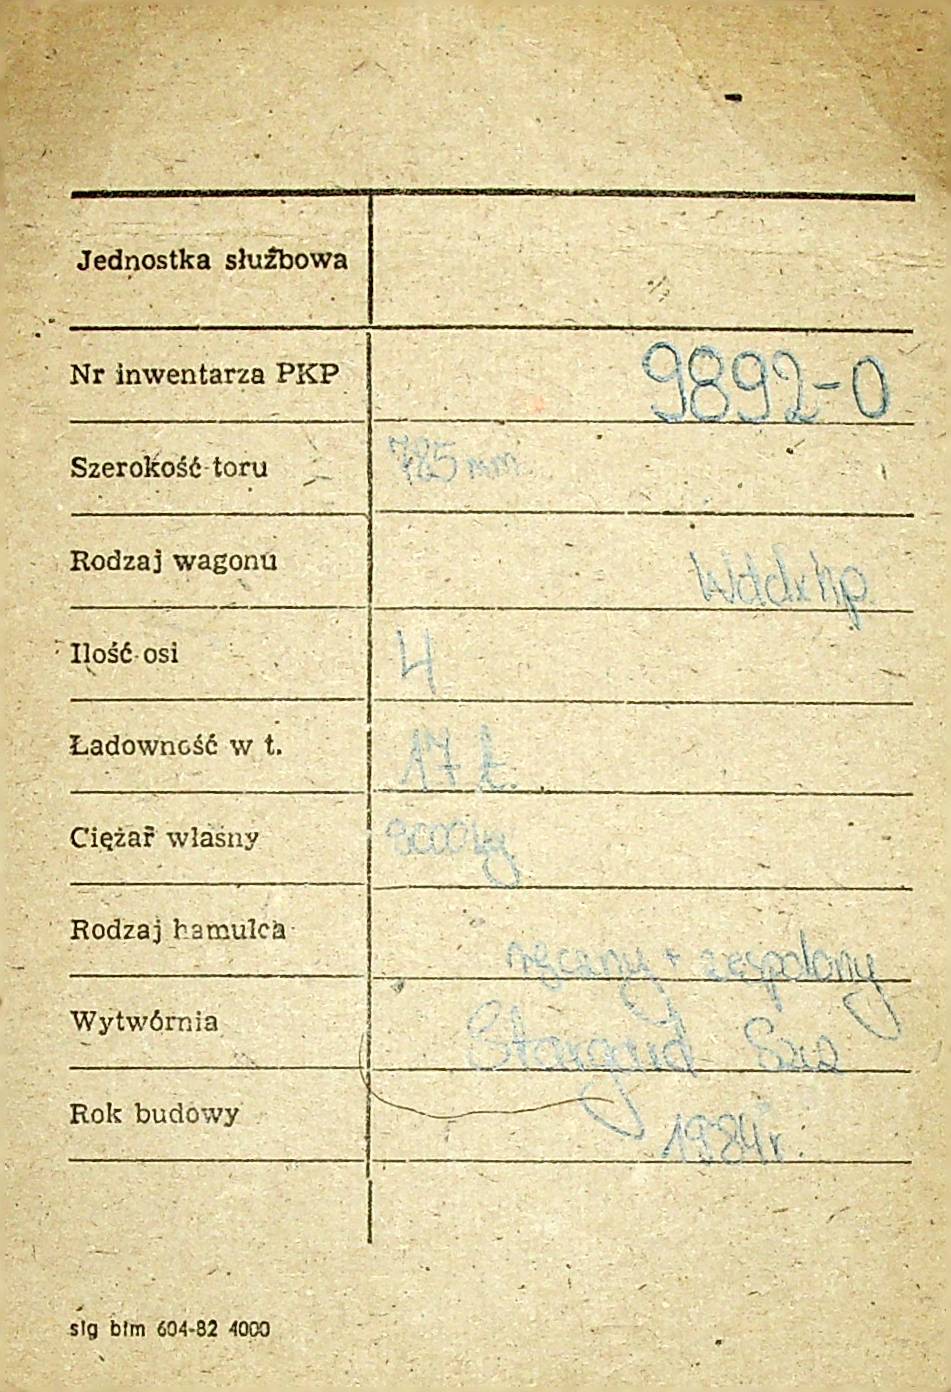 Jednostka służbowa
Nr inwentarza PKP 9892-0
Szerokość toru 785 mm
Rodzaj wagonu Wddxhp
Ilość osi 4
Ładowność w t. 17 t.
Ciężar własny 8000 kg
Rodzaj hamulca ręczny + zespolony
Wytwórnia Stargard Szcz
Rok budowy 1984 r.
slg błm 604-82 4000